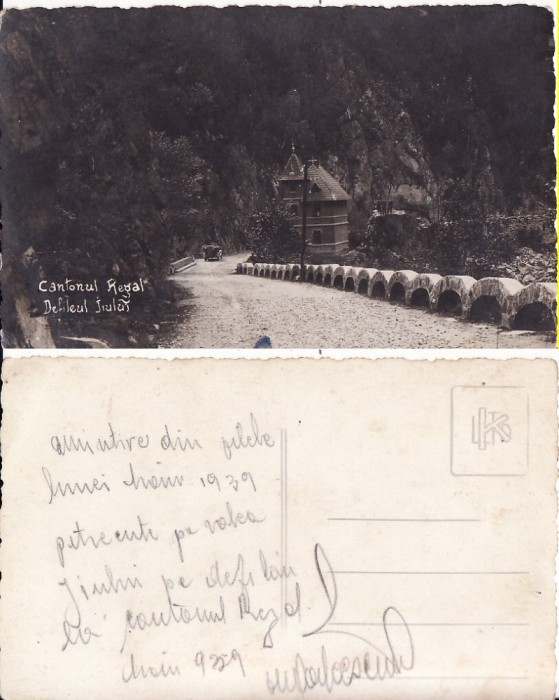 Cantonul Regal
Defileul Jiului
amintire din zilele
lunei 1939
petrecute pe valea
Jiului pe defileu
la cantonul Regal
939